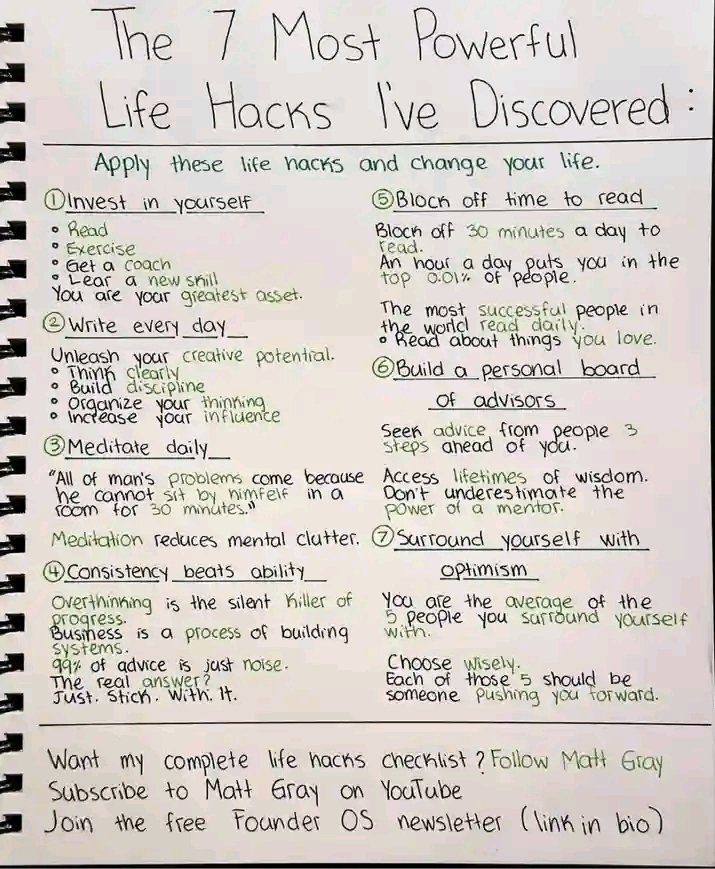 The 7 Most Powerful
Life Hacks I've Discovered:
Apply these life hacks and change your life.
① Invest in yourself
• Read
• Exercise
• Get a coach
• Lear a new skill
You are your greatest asset.
② Write every day
Unleash your creative potential.
• Think clearly
• Build discipline
• Organize your thinking
• Increase your influence
③ Meditate daily
"All of man's problems come because
he cannot sit by himfelf in a
room for 30 minutes."
Meditation reduces mental clutter.
④ Consistency beats ability
Overthinking is the silent killer of
progress.
Business is a process of building
systems.
99% of advice is just noise.
The real answer?
Just. Stick. With. It.
⑤ Block off time to read
Block off 30 minutes a day to
read.
An hour a day puts you in the
top 0.01% of people.
The most successful people in
the world read daily.
• Read about things you love.
⑥ Build a personal board
of advisors
Seek advice from people 3
steps ahead of you.
Access lifetimes of wisdom.
Don't underestimate the
power of a mentor.
⑦ Surround yourself with
optimism
You are the average of the
5 people you surround yourself
with.
Choose wisely.
Each of those 5 should be
someone pushing you forward.
Want my complete life hacks checklist? Follow Matt Gray
Subscribe to Matt Gray on YouTube
Join the free Founder OS newsletter (link in bio)